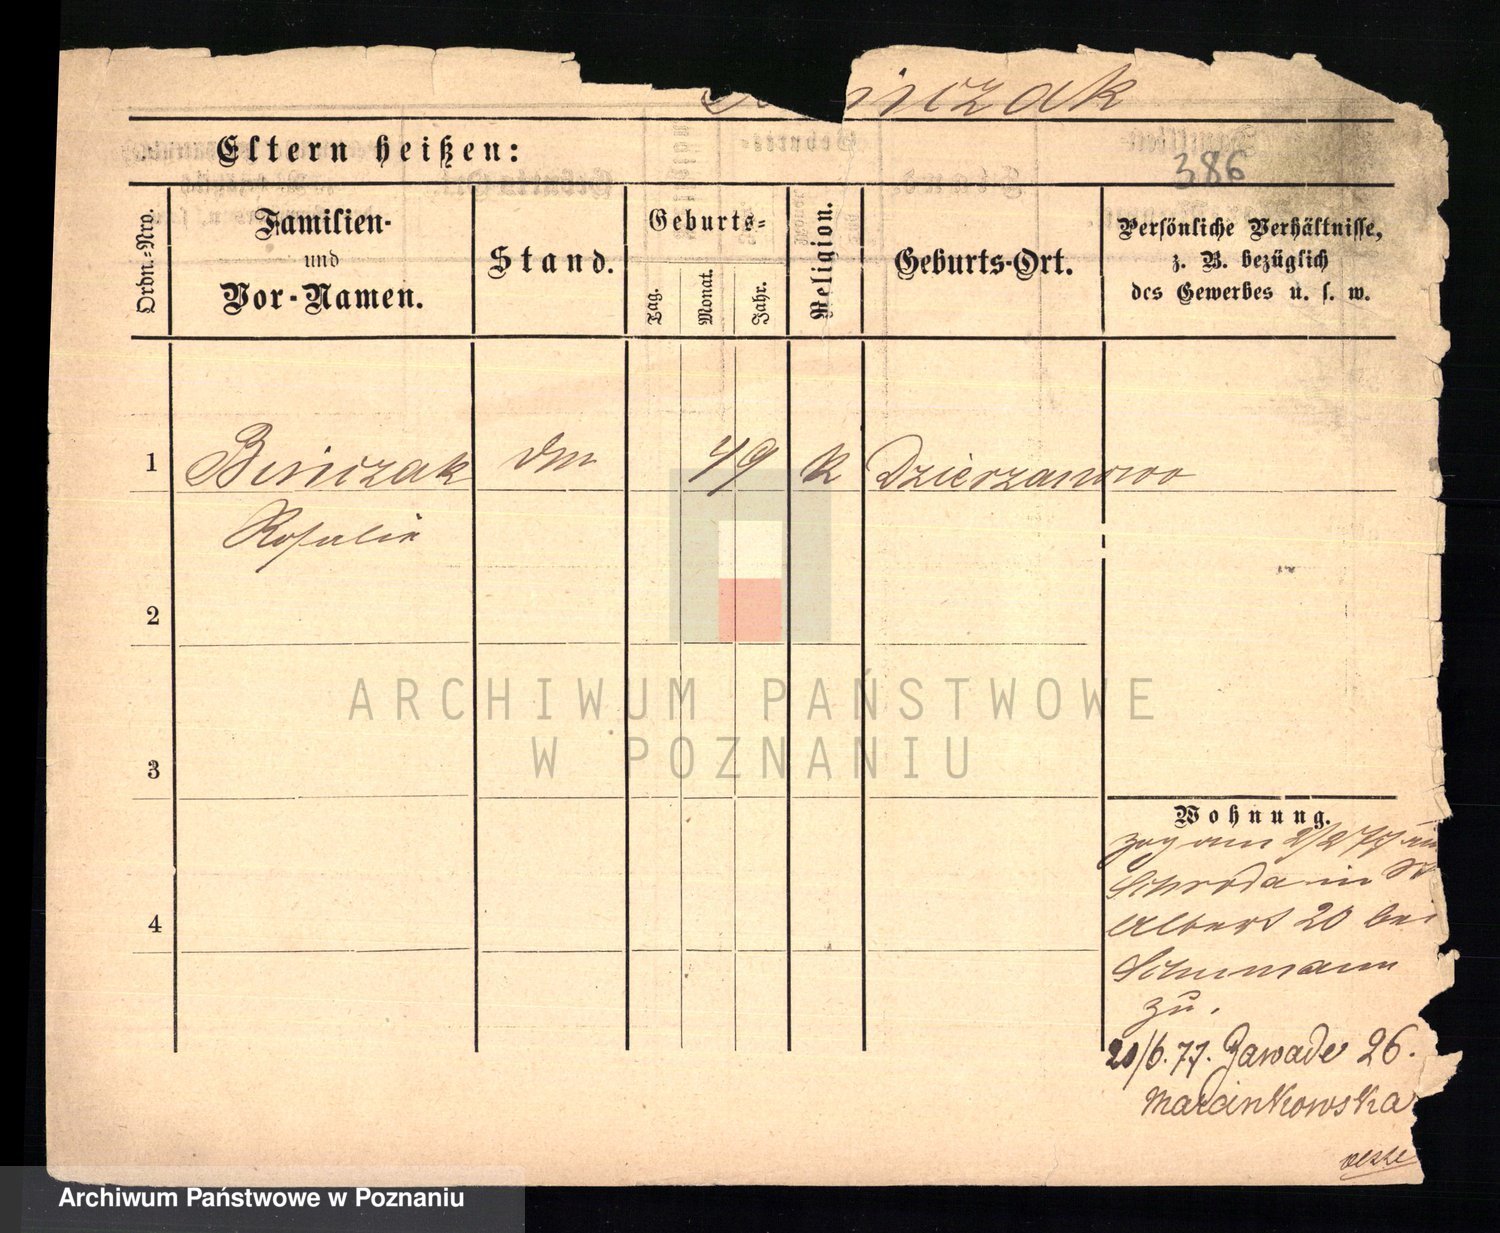 inczak
Eltern heißen:
386
Ordn.-Nro.
Familien- und Vor-Namen.
Stand.
Geburts-
Tag.
Monat.
Jahr.
Religion.
Geburts-Ort.
Persönliche Verhältnisse,
z. B. bezüglich
des Gewerbes u. s. w.
1 Binczak 49 K Dzierzanowo
Rosalie
2
3
4
Wohnung.
zog am 2/2 77 aus
Schroda in
Albert 20 bei
Schumann
zu.
20/6. 77. Zawade 26.
Marcinkowska
ARCHIWUM PAŃSTWOWE
W POZNANIU
Archiwum Państwowe w Poznaniu